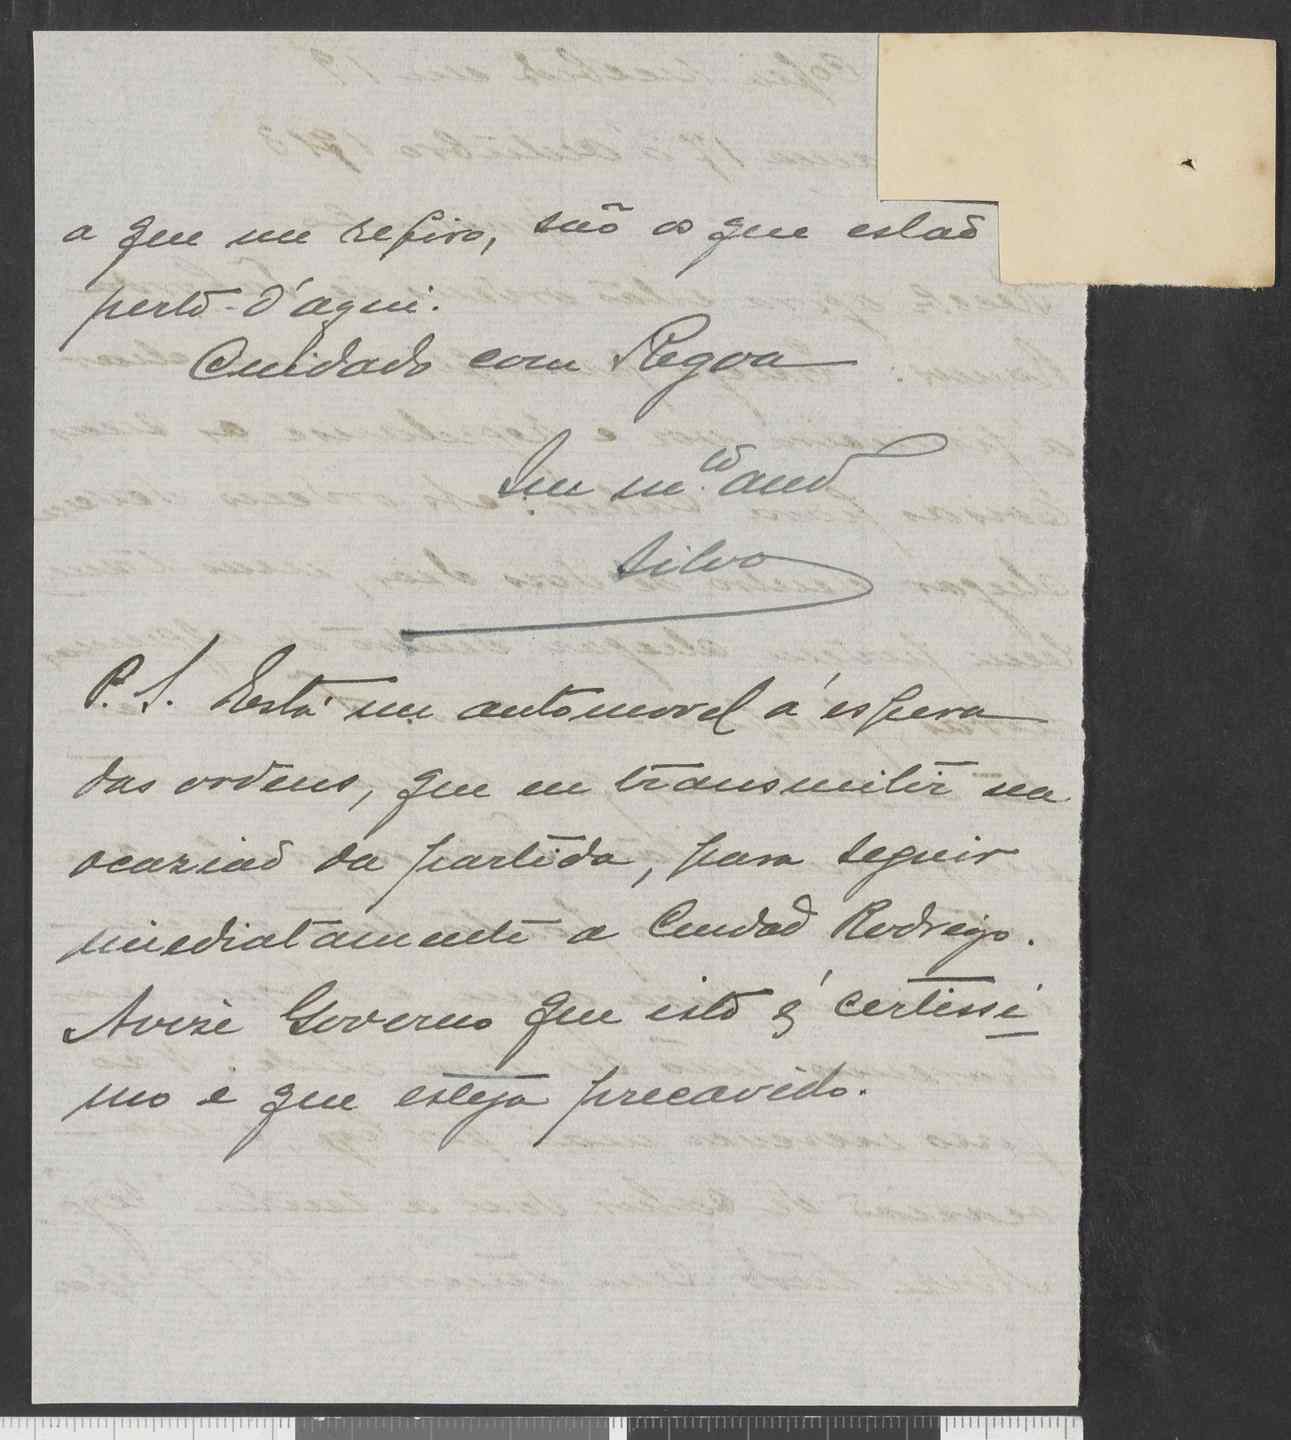 a que me refiro, são os que estaõ
perto d'aqui.
Cuidado com Regoa
Seu m.to am.o
Silva
P. S. Está um automovel á espera
das ordens, que eu transmitir na
ocaziaõ da partida, para seguir
imediatamente a Ciudad Rodrigo.
Avize Governo que isto é certissi
mo e que esteja precavido.